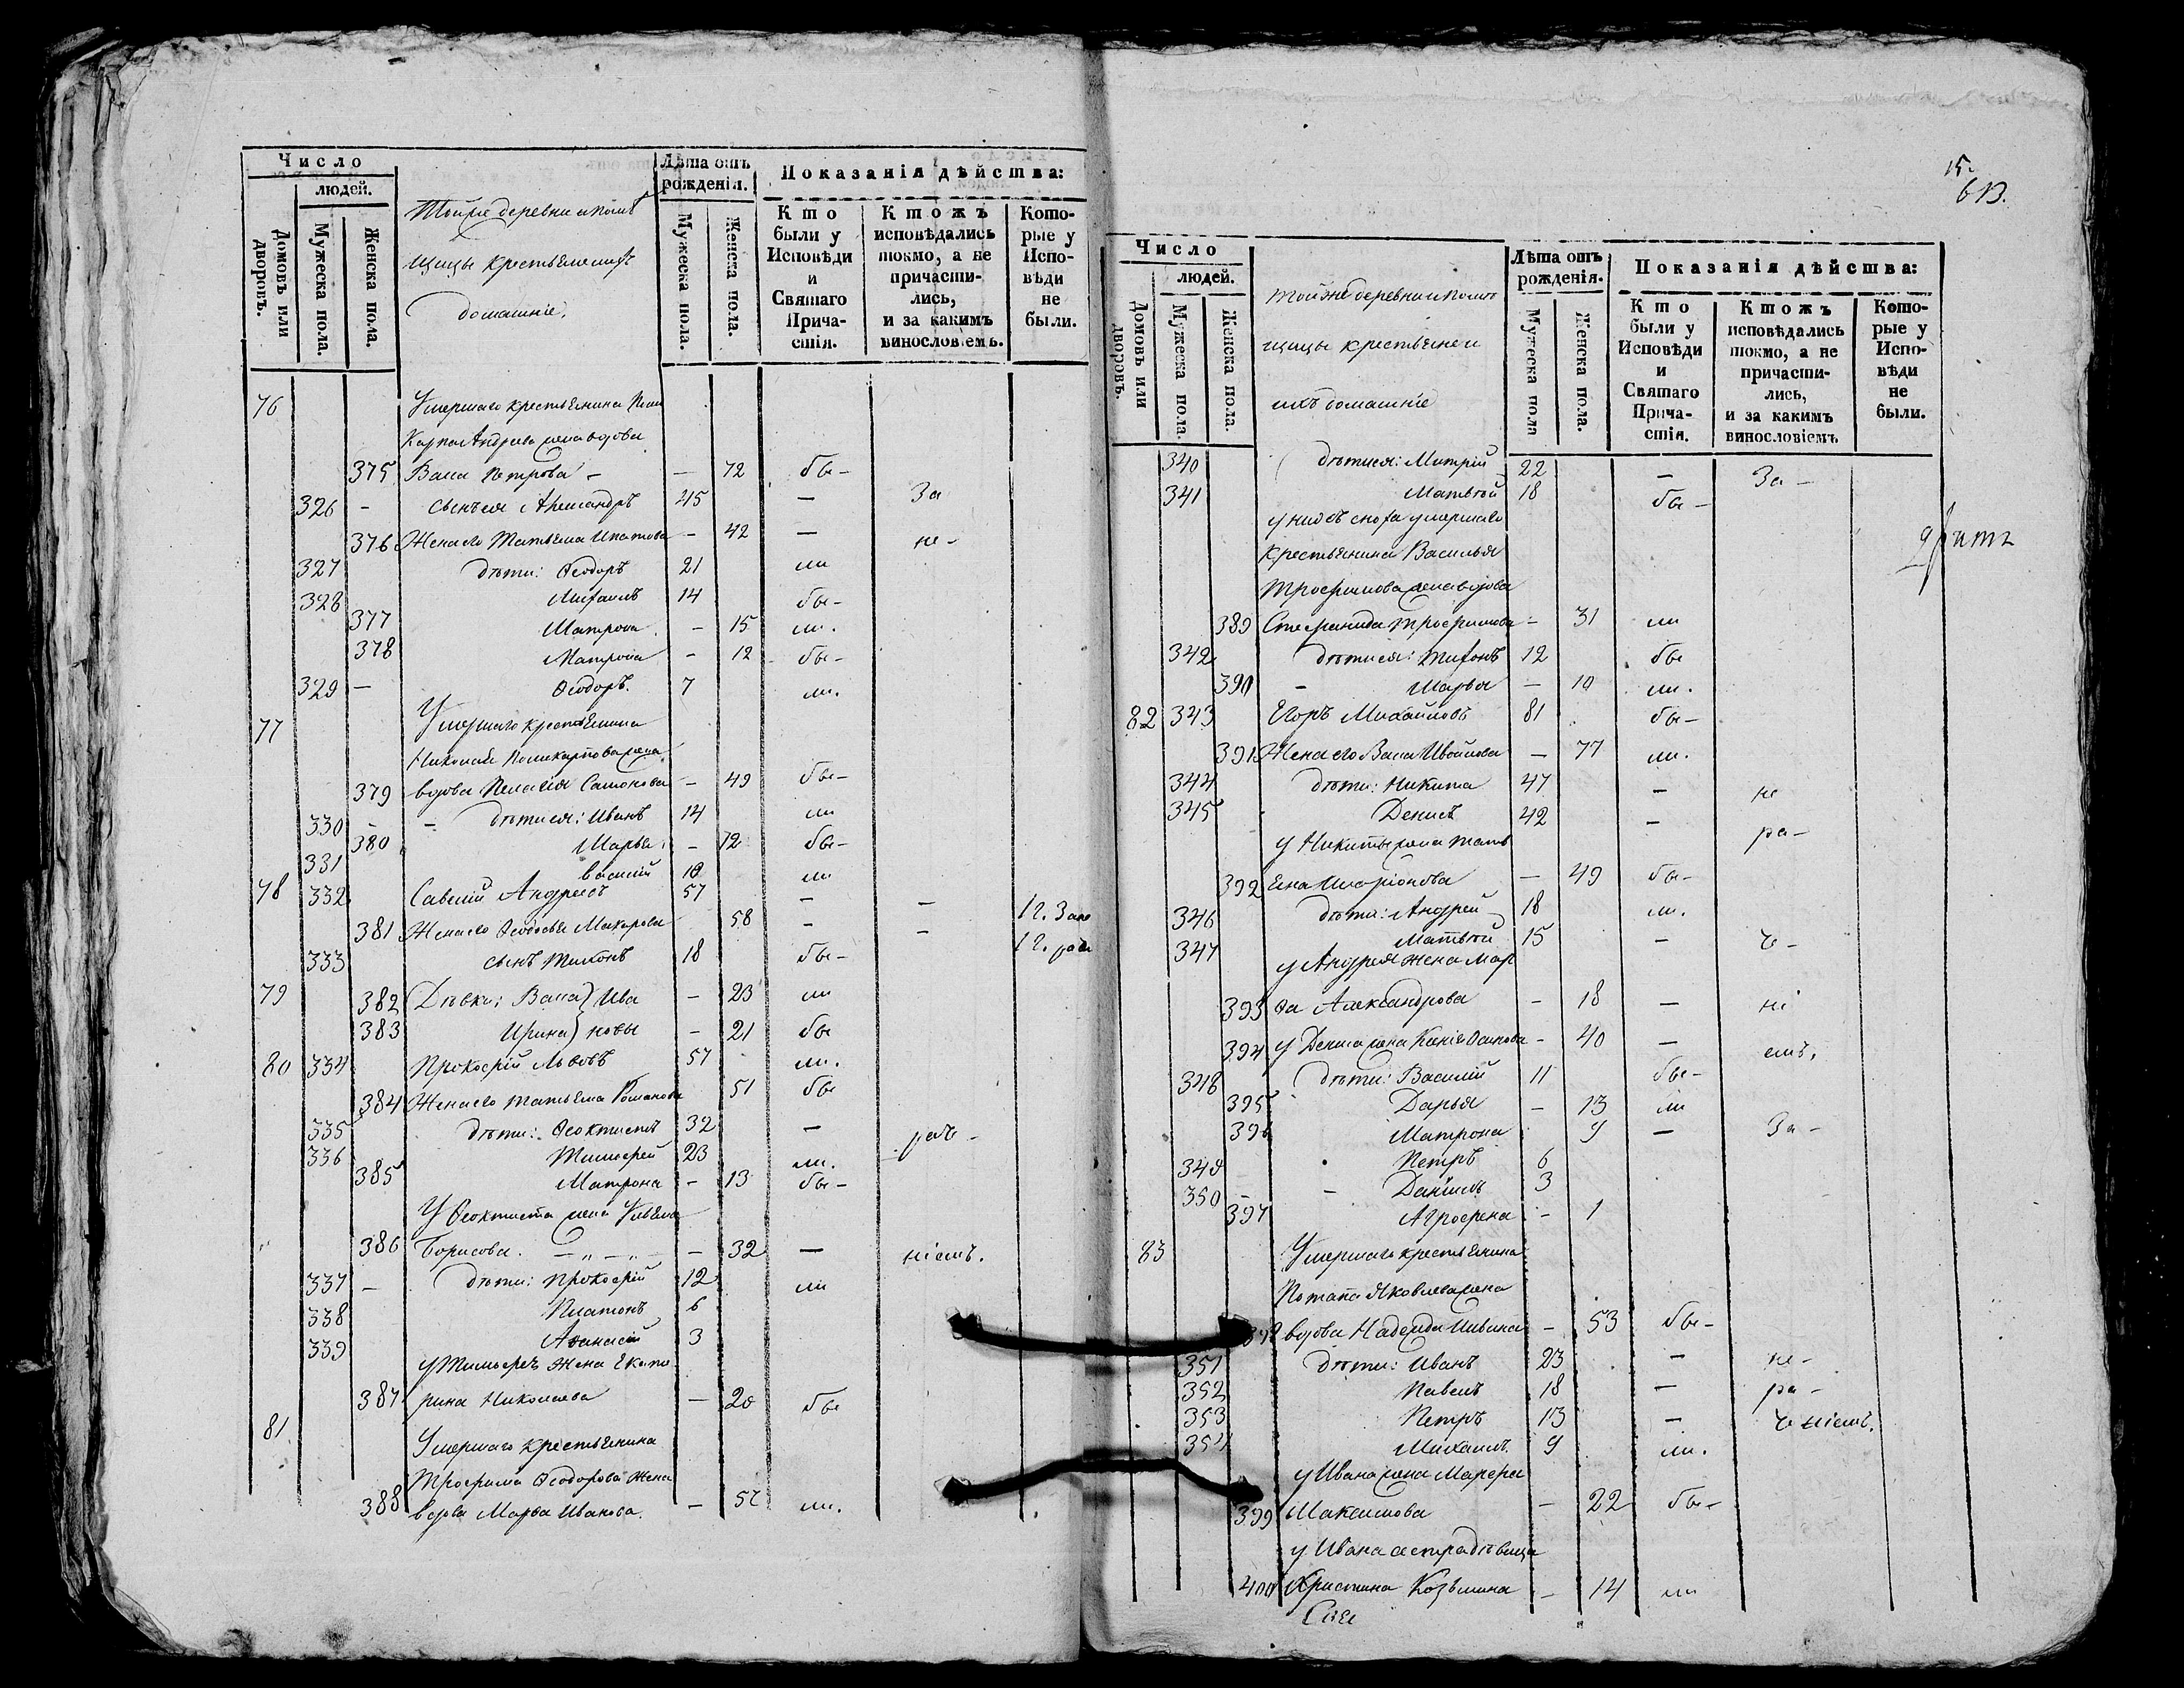 Число
людей.
Домовъ или дворовъ.
Мужеска пола.
Женска пола.
Тойже деревни и помѣ
щицы крестьяне и ихъ
домашніе.
Лѣта отъ рожденія.
Мужеска пола.
Женска пола.
Показанія дѣйства:
Кто были у Исповѣди и Святаго Причастія.
Ктожъ исповѣдались токмо, а не причастились, и за какимъ винословіемъ.
Которые у Исповѣди не были.
76 Умершаго крестьянина
Карпа Андреева жена вдова
375 Васса Петрова – – 72 бы–
326 – сынъ ея Александръ 45 – За
376 Жена его Татьяна Ипатова – 42 – не–
327 дѣти: Ѳеодоръ 21 ли
328 Михаилъ 14 бы–
377 Матрона – 15 ли.
378 Матрона – 12 бы–
329 – Ѳеодоръ. 7 ли.
77 Умершаго крестьянина
Николая Поликарпова жена
379 вдова Пелагія Самонова – 49 бы–
330 – – дѣти ея: Иванъ 14 ли
380 Марья – 12 бы–
331 Василій 10 ли
78 332 Савелій Андреевъ 57 – –
381 Жена его Ѳеодосья Макарова 58 – – 1 г.
333 сынъ Тихонъ 18 бы– 1 г.
79 382 Дѣвки: Васса) Ива – 23 ли
383 Ирина) новы – 21 бы
80 334 Прокофій Львовъ 57 ли.
384 Жена его Татьяна Романова 51 бы
335 дѣти: Ѳеоктистъ 32 – раче–
336 Тимофей 23 ли.
385 Матрона – 13 бы–
У Ѳеоктиста жена Ульяна
386 Борисова. – „ – „ – – 32 – ніемъ.
337 – дѣти: Прокофій 12 ли
338 Платонъ 6
339 Аѳанасій 3
у Тимофея жена Екате
387 рина Николаева – 20 бы
81 Умершаго крестьянина
Трофима Ѳеодорова жена
388 вдова Марѳа Иванова. – 52 ли.
15.
613.
Число
людей.
Домовъ или дворовъ.
Мужеска пола.
Женска пола.
Тойже деревни и помѣ
щицы крестьяне и
ихъ домашніе
Лѣта отъ рожденія.
Мужеска пола
Женска пола.
Показанія дѣйства:
Кто были у Исповѣди и Святаго Причастія.
Ктожъ исповѣдались токмо, а не причастились, и за какимъ винословіемъ
Которые у Исповѣди не были.
340 дѣти ея: Митрій 22 – За–
341 Матвѣй 18 бы–
у ней сноха умершаго
крестьянина Василья
Трофимова жена вдова
389 Степанида Трофимова – 31 ли
342 дѣти ея: Тихонъ 12 бы
390 – Марья – 10 ли.
82 343 Егоръ Михайловъ 81 бы–
391 Жена его Васса Ивойлова – 77 ли.
344 дѣти: Никита 47 – не
345 Денисъ 42 – ра–
у Никиты жена Тать
392 яна Иларіонова – 49 бы–
346 дѣти: Андрей 18 ли.
347 Матвѣй 15 – че–
у Андрея жена Мар
393 ѳа Александрова – 18 – ні
394 у Дениса жена Ксенія Осипова – 40 – емъ.
348 дѣти: Василій 11 бы–
395 Дарья – 13 ли
396 Матрона 9 – За–
349 Петръ 6
350 – – Даніилъ 3
397 Агрофена – 1
83 Умершаго крестьянина
Потапа Яковлева жена
398 вдова Надежда Ильина – 53 бы–
351 дѣти: Иванъ 23 – не–
352 Павелъ 18 – ра–
353 Петръ 13 – ченіемъ.
354 Михаилъ 9 ли.
у Ивана жена Марфа
399 Максимова – 22 бы–
у Ивана сестра дѣвица
400 Христина Козьмина – 14 ли